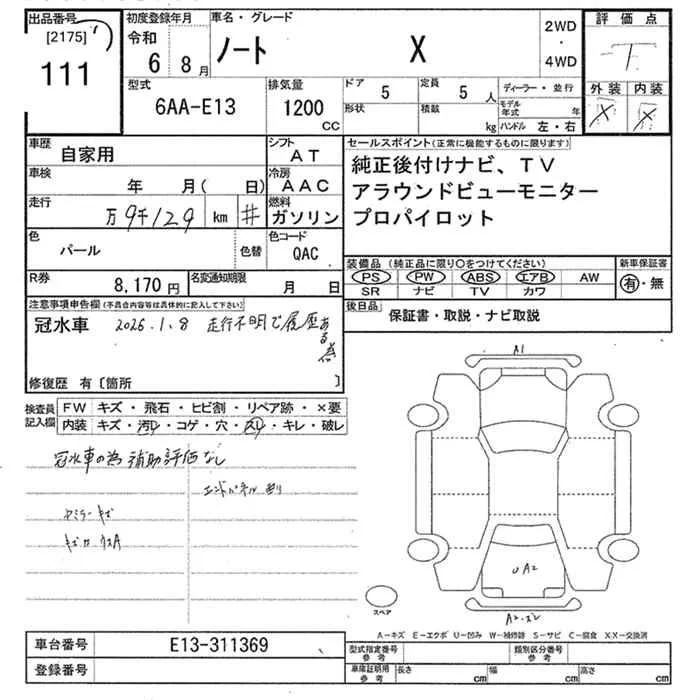 出品番号
[2175]
111
初度登録年月
令和
6 8月
車名・グレード
ノート X
2WD
・
4WD
評価点
外装 内装
X X
型式
6AA-E13
排気量
1200
CC
ドア 5
形状
定員 5 人
積数 kg
ディーラー・並行
モデル年式 年
ハンドル 左・右
車歴
自家用
シフト
AT
車検
年 月( 日)
冷房
AAC
走行
万9千129 km #
燃料
ガソリン
色
パール
色替
色コード
QAC
R券
8,170円
名変通知期限
月 日
セールスポイント(正常に機能するものに限ります)
純正後付けナビ、TV
アラウンドビューモニター
プロパイロット
装備品(純正品に限り〇をつけてください)
PS PW ABS エアB AW
SR ナビ TV カワ
新車保証書
有・無
後日品
保証書・取説・ナビ取説
注意事項申告欄(不具合内容等は具体的に記入して下さい)
冠水車 2026.1.8 走行不明で履歴ある為
修復歴 有〔箇所 〕
検査員記入欄
FW キズ・飛石・ヒビ割・リペア跡・×要
内装 キズ・汚レ・コゲ・穴・スレ・キレ・破レ
冠水車の為 補助評価なし
A1
UA2
スペア
A-キズ E-エクボ U-凹み W-補修跡 S-サビ C-腐食 XX-交換済
車台番号
E13-311369
登録番号
型式指定番号
参考
類別区分番号
参考
車庫証明用
参考
長さ cm 幅 cm 高さ cm